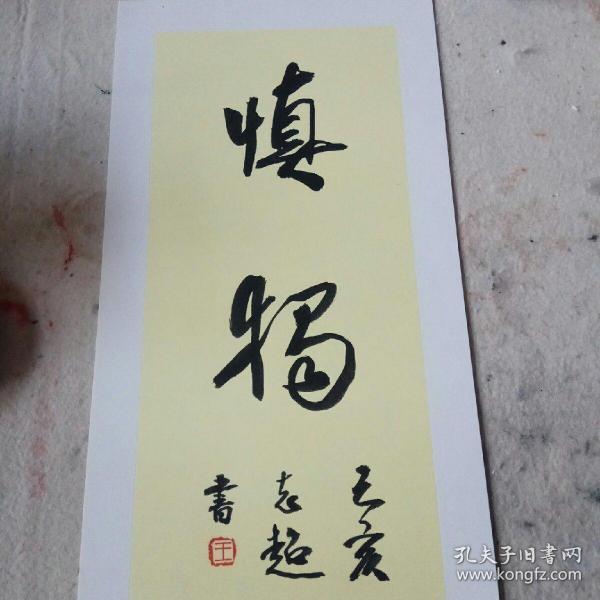 慎
獨
己亥
志超
書
王
孔夫子旧书网
www.kongfz.com